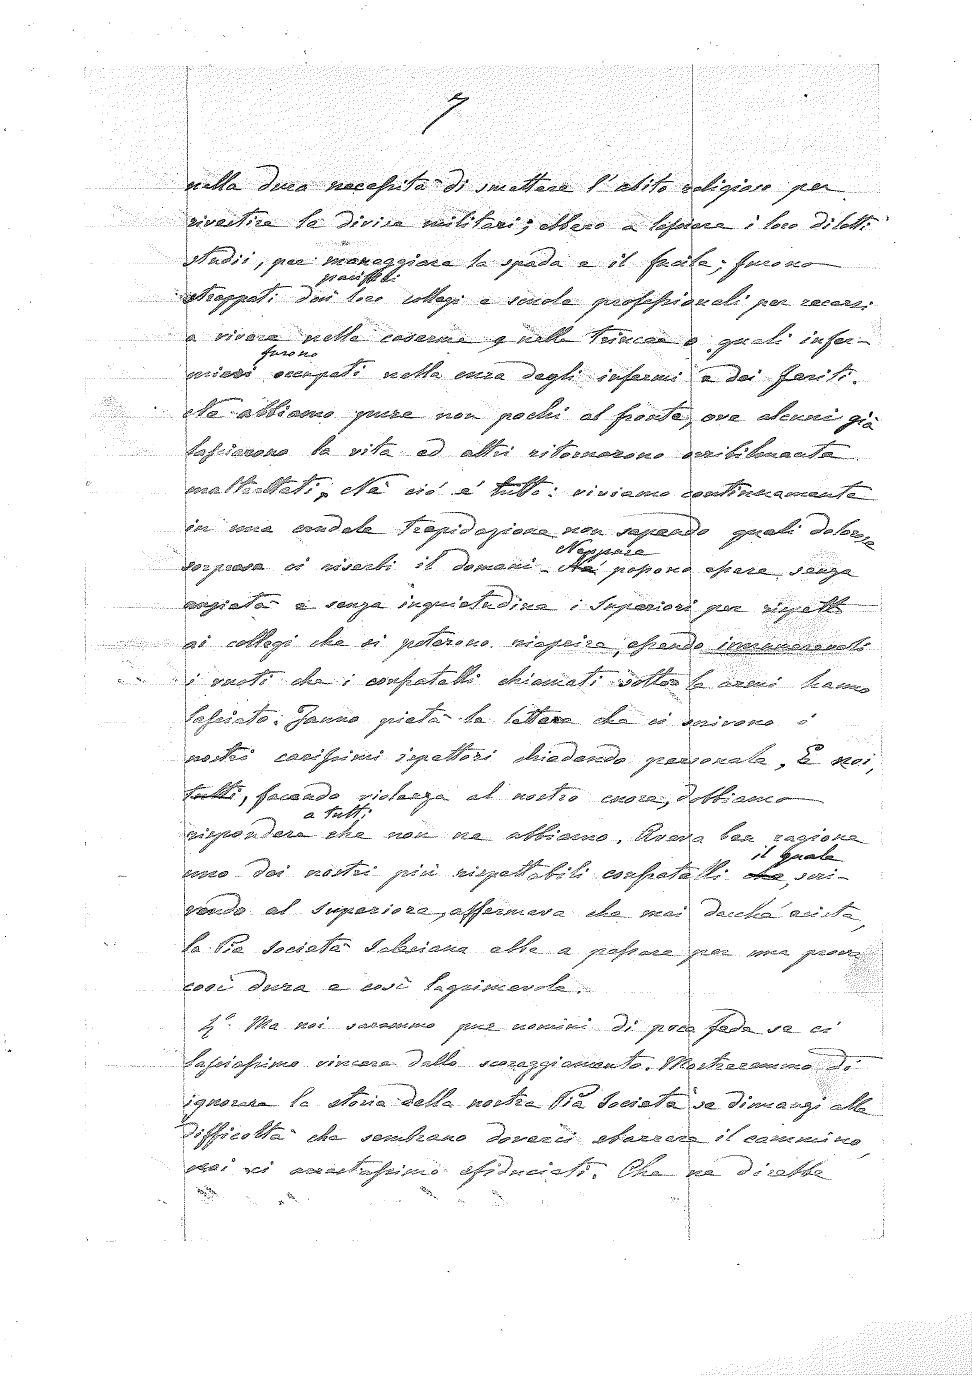 7
nella dura necessità di smettere l'abito religioso per
rivestire le divise militari; ebbero a lasciare i loro diletti
studii, per maneggiare la spada e il fucile; furono
pacifici
strappati dai loro collegi e scuole professionali per recarsi
a vivere nelle caserme e nelle trincee o quali infer-
furono
mieri occupati nella cura degli infermi e dei feriti.
Ne abbiamo pure non pochi al fronte, ove alcuni già
lasciarono la vita ed altri ritornarono orribilmente
maltrattati. Nè ciò è tutto: viviamo continuamente
in una crudele trepidazione non sapendo quali dolorose
Neppure
sorprese ci riserbi il domani. Nè possono essere senza
ansietà e senza inquietudine i Superiori per rispetto
ai collegi che si poterono riaprire, essendo innumerevoli
i vuoti che i confratelli chiamati sotto le armi hanno
lasciato. Fanno pietà le lettere che ci scrivono i
nostri carissimi ispettori chiedendo personale. E noi,
tutti, facendo violenza al nostro cuore, dobbiamo
a tutti
rispondere che non ne abbiamo. Aveva ben ragione
il quale
uno dei nostri più rispettabili confratelli che, scri-
vendo al superiore, affermava che mai dacchè esiste,
la Pia Società Salesiana ebbe a passare per una prova
così dura e così lagrimevole.
4°. Ma noi saremmo pur uomini di poca fede se ci
lasciassimo vincere dallo scoraggiamento. Mostreremmo di
ignorare la storia della nostra Pia Società se dinnanzi alle
difficoltà che sembrano doverci sbarrare il cammino,
noi ci arrestassimo sfiduciati. Che ne direbbe